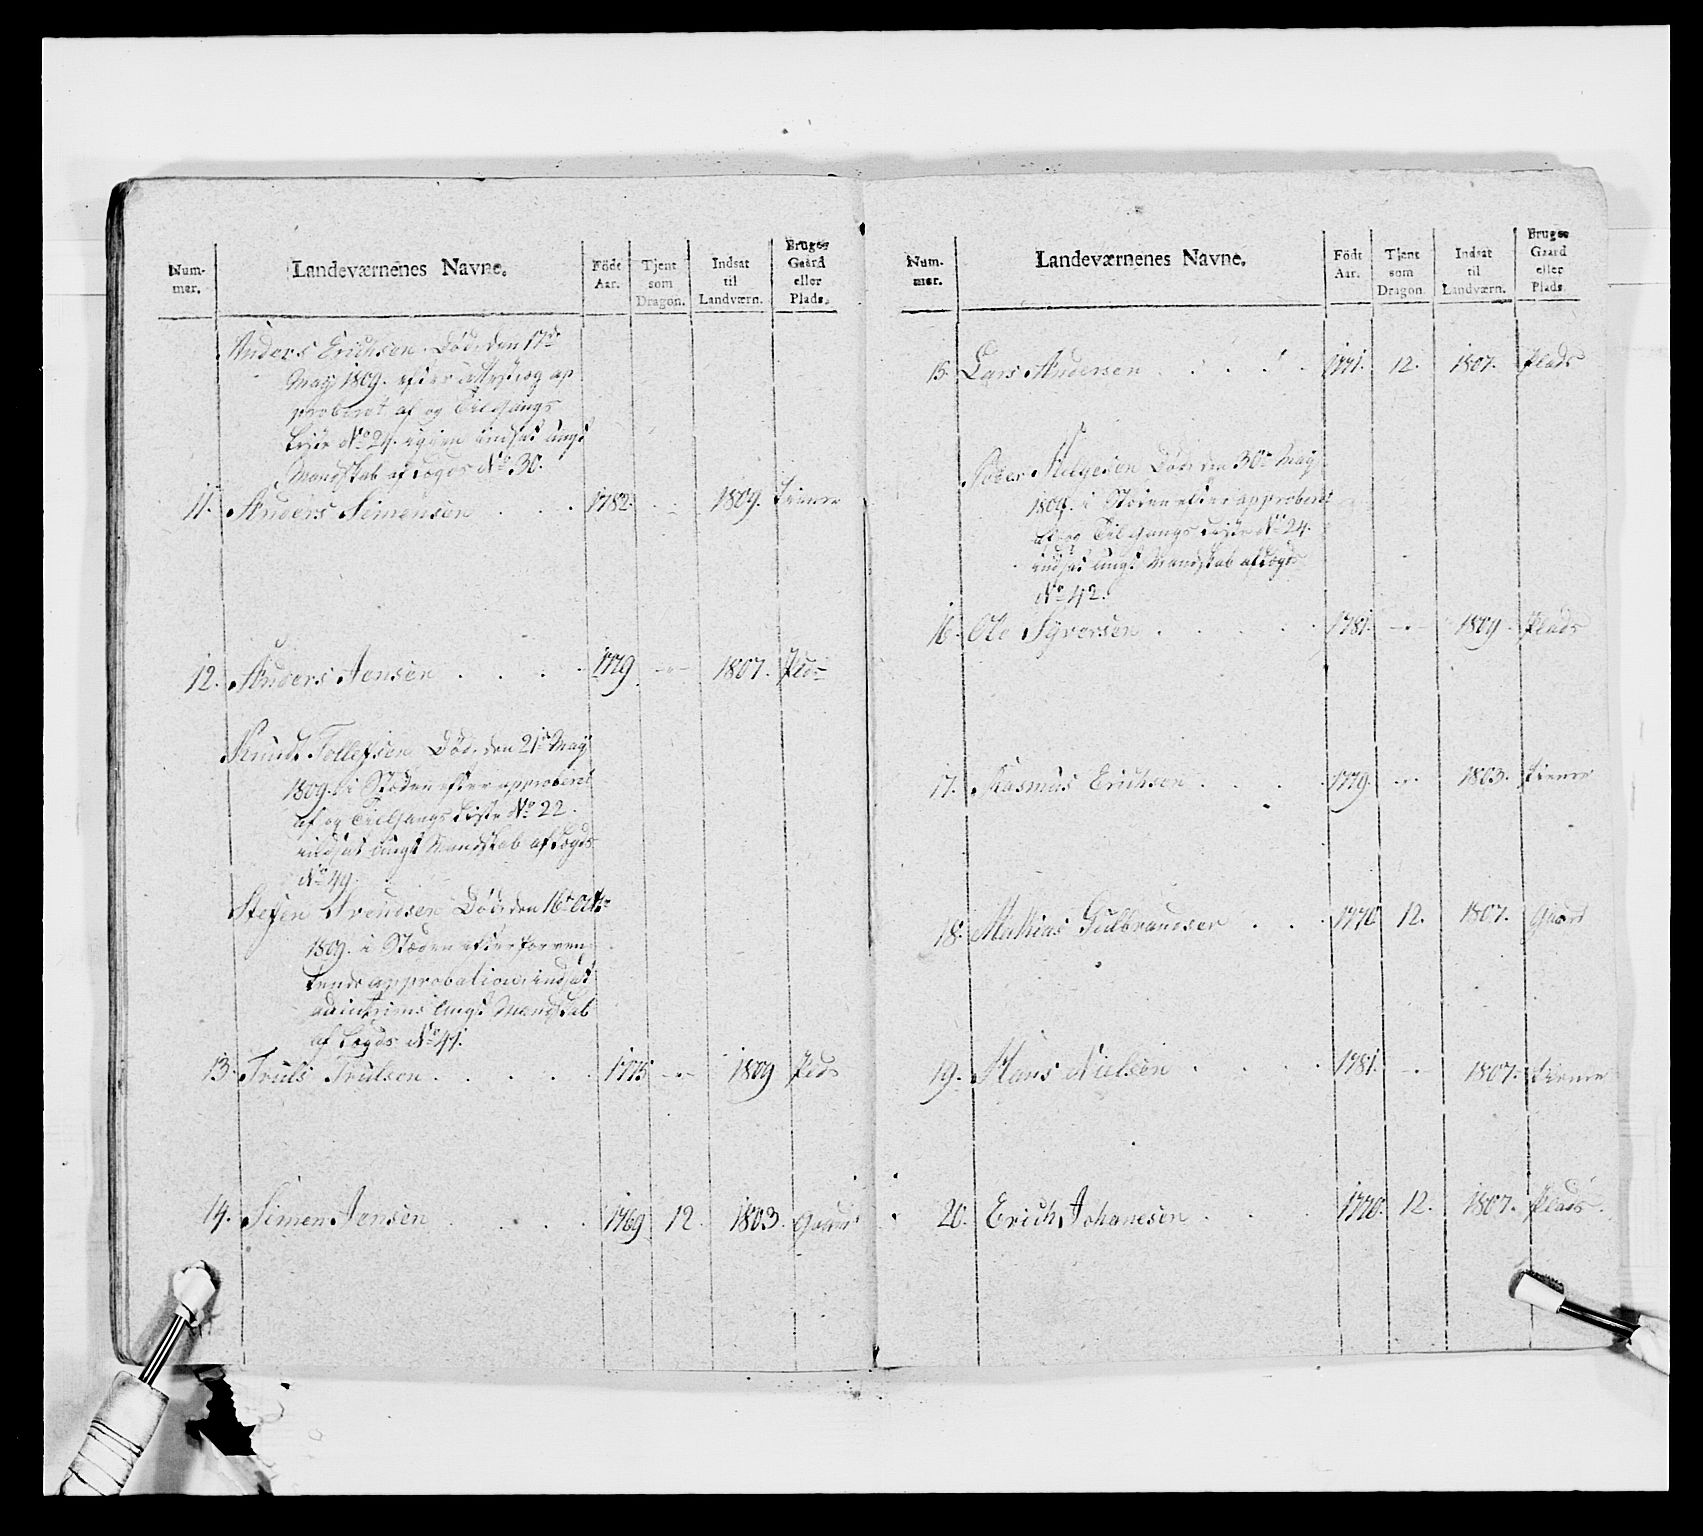 Num-
mer.
Landeværnenes Navne.
Født
Aar.
Tjent
som
Dragon.
Indsat
til
Landværn.
Bruger
Gaard
eller
Plads.
Anders Erichsen Død den 17de
May 1809. efter attest og ap
proberet af og Tilgangs
Liste No 24. igjen indsat ungt
Mandskab af Lægds No 30.
11. Anders Simensen 1782. 1809. Tiener
12. Anders Jensen 1779 1807. Pads
Knud Tollefsen Død den 21de May
1809. i Stæden efter approberet
af og Tilgangs Liste No 22.
indsat ungt Mandskab af Lægds
No 49.
Steffen Død den 16de Octbr
1809. i Stæden efter forven-
tende approbation indsat
ad interims ungt Mandskab
af Lægds No 41.
13. Truls Trulsen 1775 1809 Pads
14. Simen Jensen 1769 12. 1803. Gaard
Num-
mer.
Landeværnenes Navne.
Født
Aar.
Tjent
som
Dragon.
Indsat
til
Landværn.
Bruger
Gaard
eller
Plads.
15. Lars Andersen 1771. 12. 1807. Plads
Peder Helgesen Død den 30te May
1809. i Stæden efter approberet
af og Tilgangs Liste No 24.
indsat ungt Mandskab af Lægds
No 42.
16. Ole Syversen 1781. 1809 Plads
17. Rasmus Erichsen 1779. 1803. Tiener
18. Mathias Gulbrandsen 1770 12. 1807. Gaard
19. Hans Nielsen 1781. 1807. Tiener
20. Erich Johanesen 1770. 12. 1807. Plads.